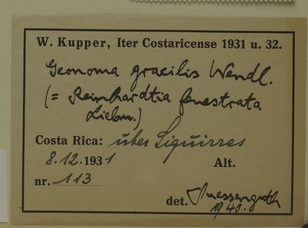 W. Kupper, Iter Costaricense 1931 u. 32.
Geonoma gracilis Wendl.
(= Reinhardtia fenestrata
Liebm.)
Costa Rica: über Siquirres
8.12.1931 Alt.
nr. 113
det. Suessenguth
1940.